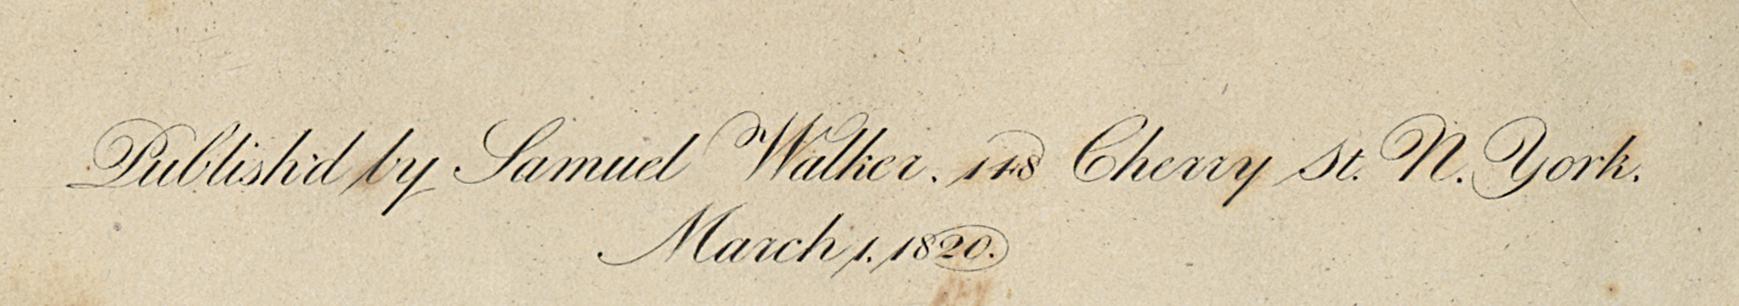 Publish'd by Samuel Walker. 148 Cherry St. N. York.
March 1. 1820.